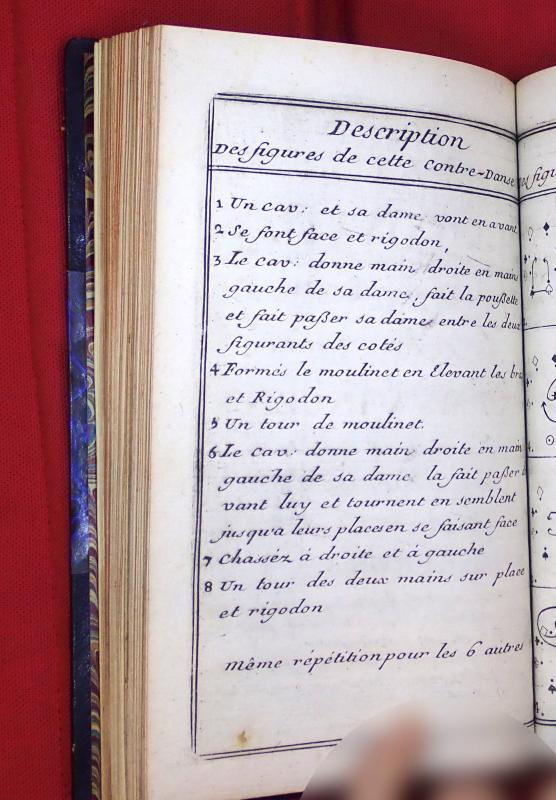 Description
Des figures de cette Contre-Danse
1 Un cav: et sa dame vont en avant
2 Se font face et rigodon,
3 Le cav: donne main droite en main
gauche de sa dame, fait la poußette
et fait paßer sa dame entre les deux
figurants des cotés
4 Formés le moulinet en Elevant les bra
et Rigodon
5 Un tour de moulinet.
6 Le cav: donne main droite en main
gauche de sa dame la fait paßer
vant luy et tournent en semblent
jusqu'a leurs places en se faisant face
7 Chasséz á droite et á gauche
8 Un tour des deux mains sur place
et rigodon
même répétition pour les 6 autres